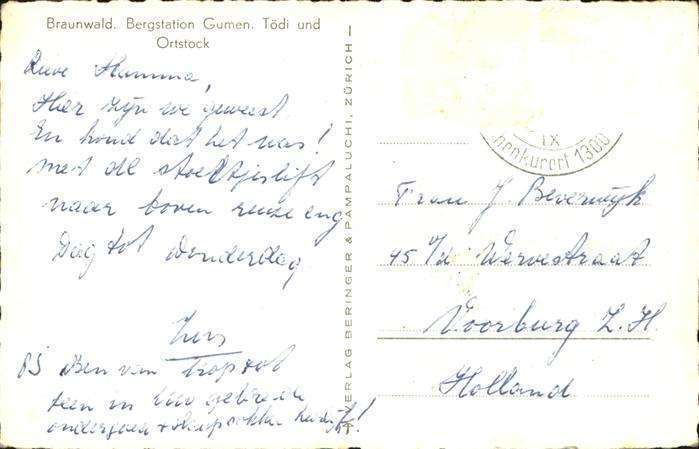 Braunwald. Bergstation Gumen. Tödi und
Ortstock
Lieve Mamma,
Hier zijn we geweest
En koud dat het was!
met de stoeltjeslift
naar boven reuze eng
Dag tot Donderdag
PS Ben van top tot
teen in
ondergoed +
VERLAG BERINGER & PAMPALUCHI, ZÜRICH
IX
henkurort 1300
Frau J. Beverwijk
45 v/d Wervestraat
Voorburg Z.H.
Holland